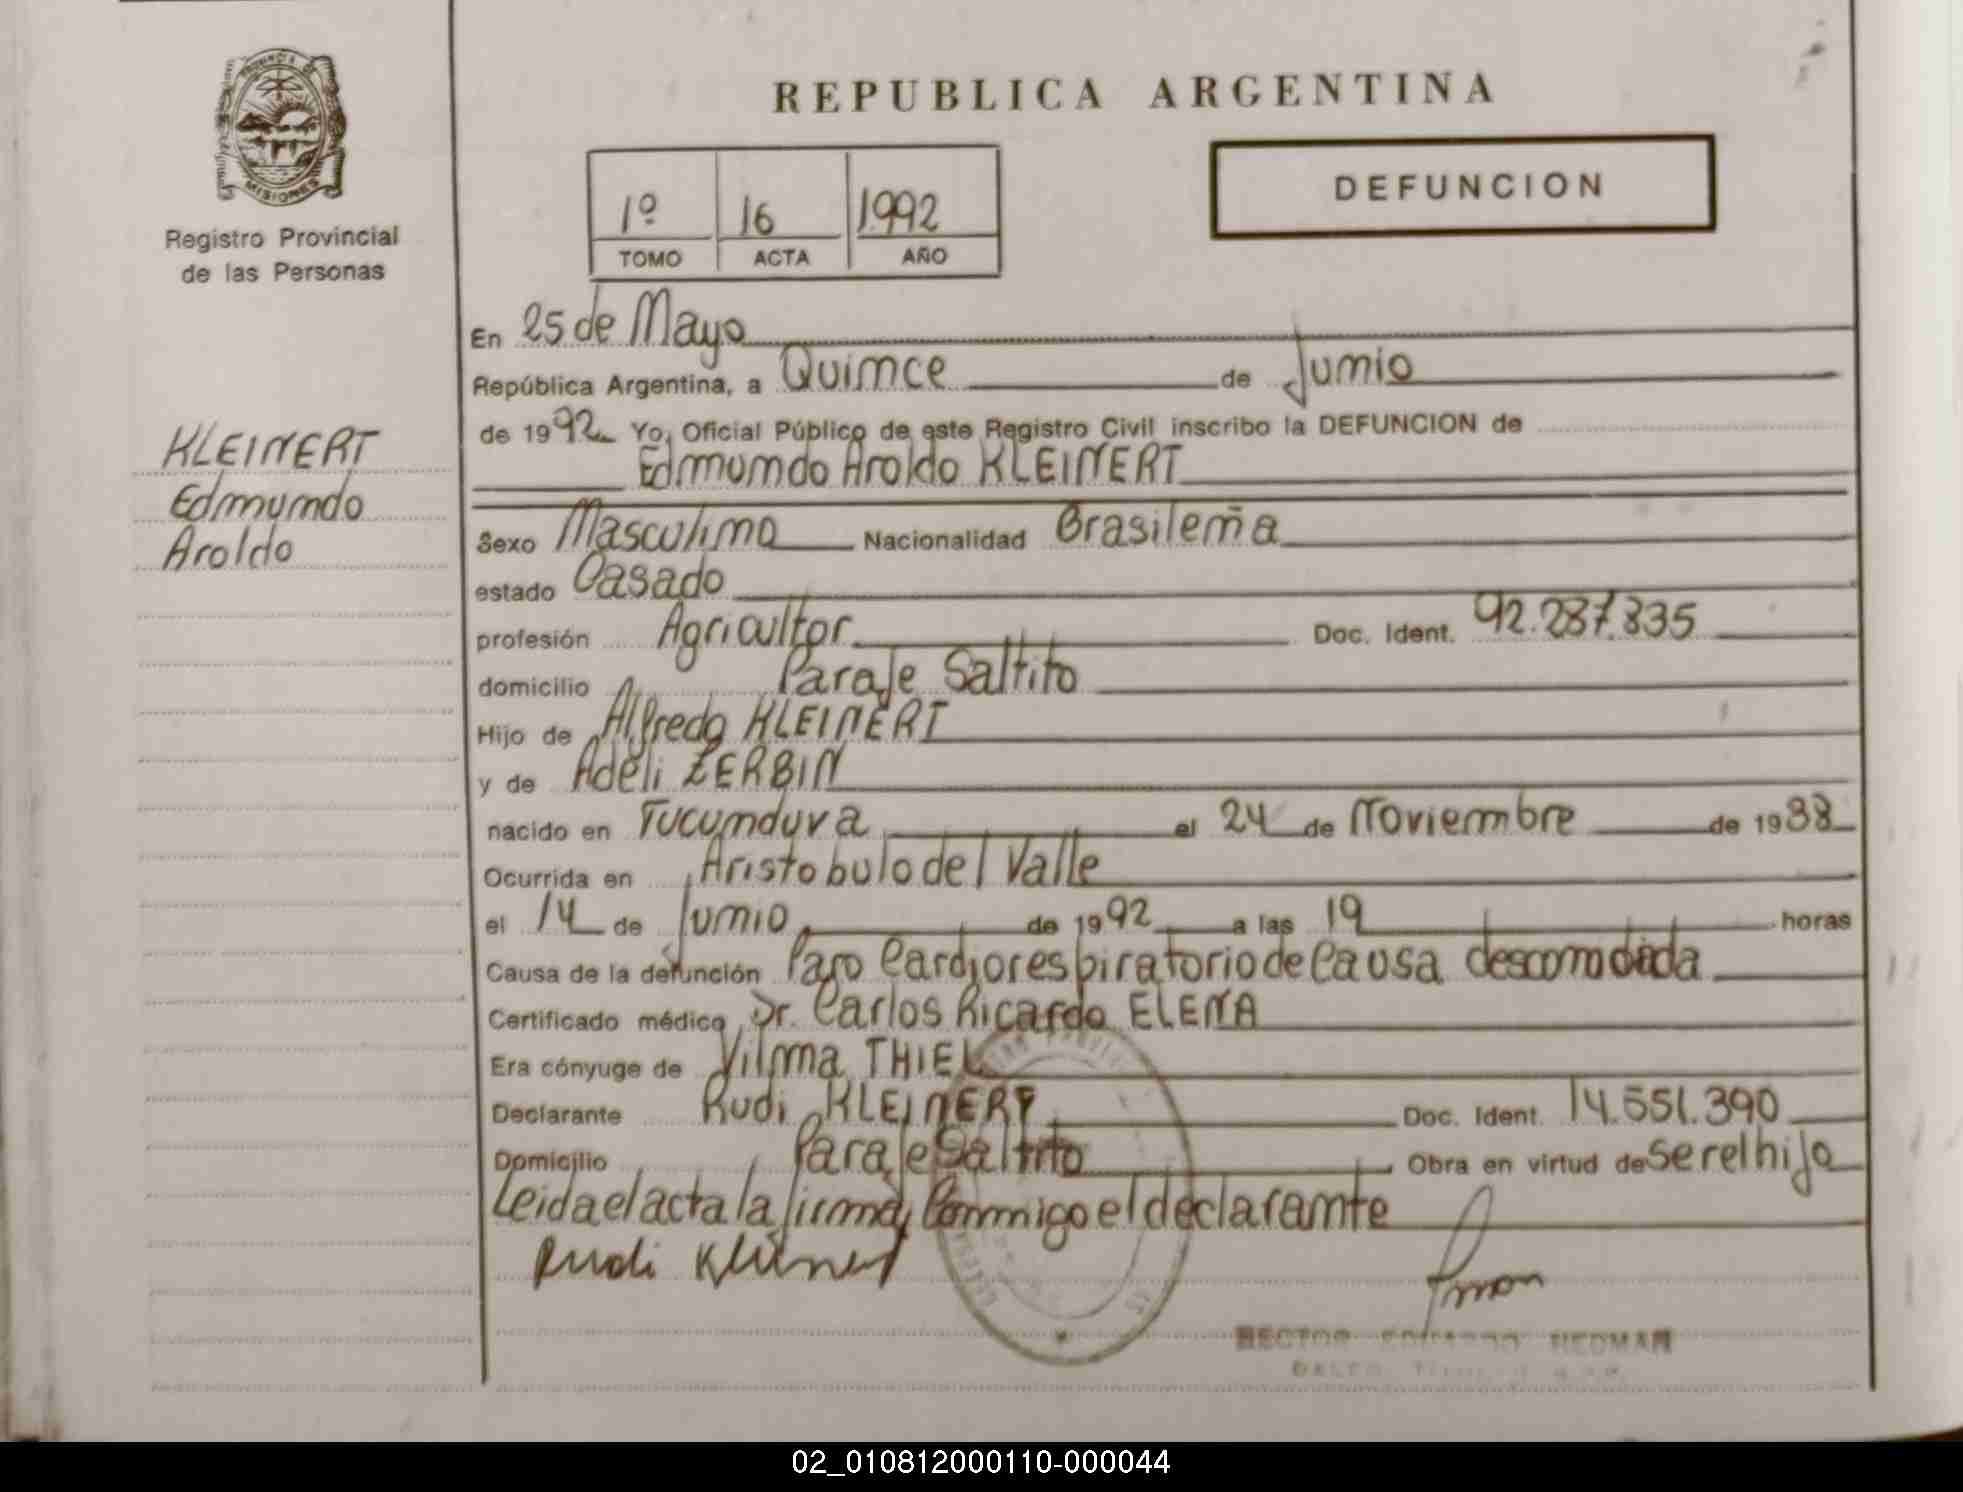 REPUBLICA ARGENTINA
MISIONES
Registro Provincial
de las Personas
1º 16 1992
TOMO ACTA AÑO
DEFUNCION
KLEINERT
Edmundo
Aroldo
En 25 de Mayo
República Argentina, a Quince de Junio
de 1992 Yo, Oficial Público de este Registro Civil inscribo la DEFUNCION de
Edmundo Aroldo KLEINERT
Sexo Masculino Nacionalidad Brasileña
estado Casado
profesión Agricultor Doc. Ident. 92.287.835
domicilio Paraje Saltito
Hijo de Alfredo KLEINERT
y de Adeli ZERBIN
nacido en Tucunduva el 24 de Noviembre de 1938
Ocurrida en Aristobulo del Valle
el 14 de Junio de 1992 a las 19 horas
Causa de la defunción Paro Cardiorespiratorio de Causa
Certificado médico Dr. Carlos Ricardo ELENA
Era cónyuge de Vilma THIEL
Declarante Rudi KLEINERT Doc. Ident. 14.551.390
Domicilio Paraje Saltito Obra en virtud de ser el hijo
Leida el acta la firma, Conmigo el declarante
Rudi Kleinert
HECTOR EDUARDO
02_010812000110-000044